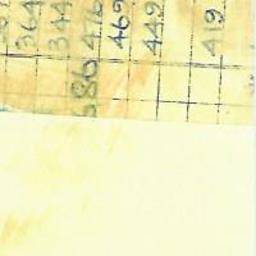 364
344
476
686
469
449
419